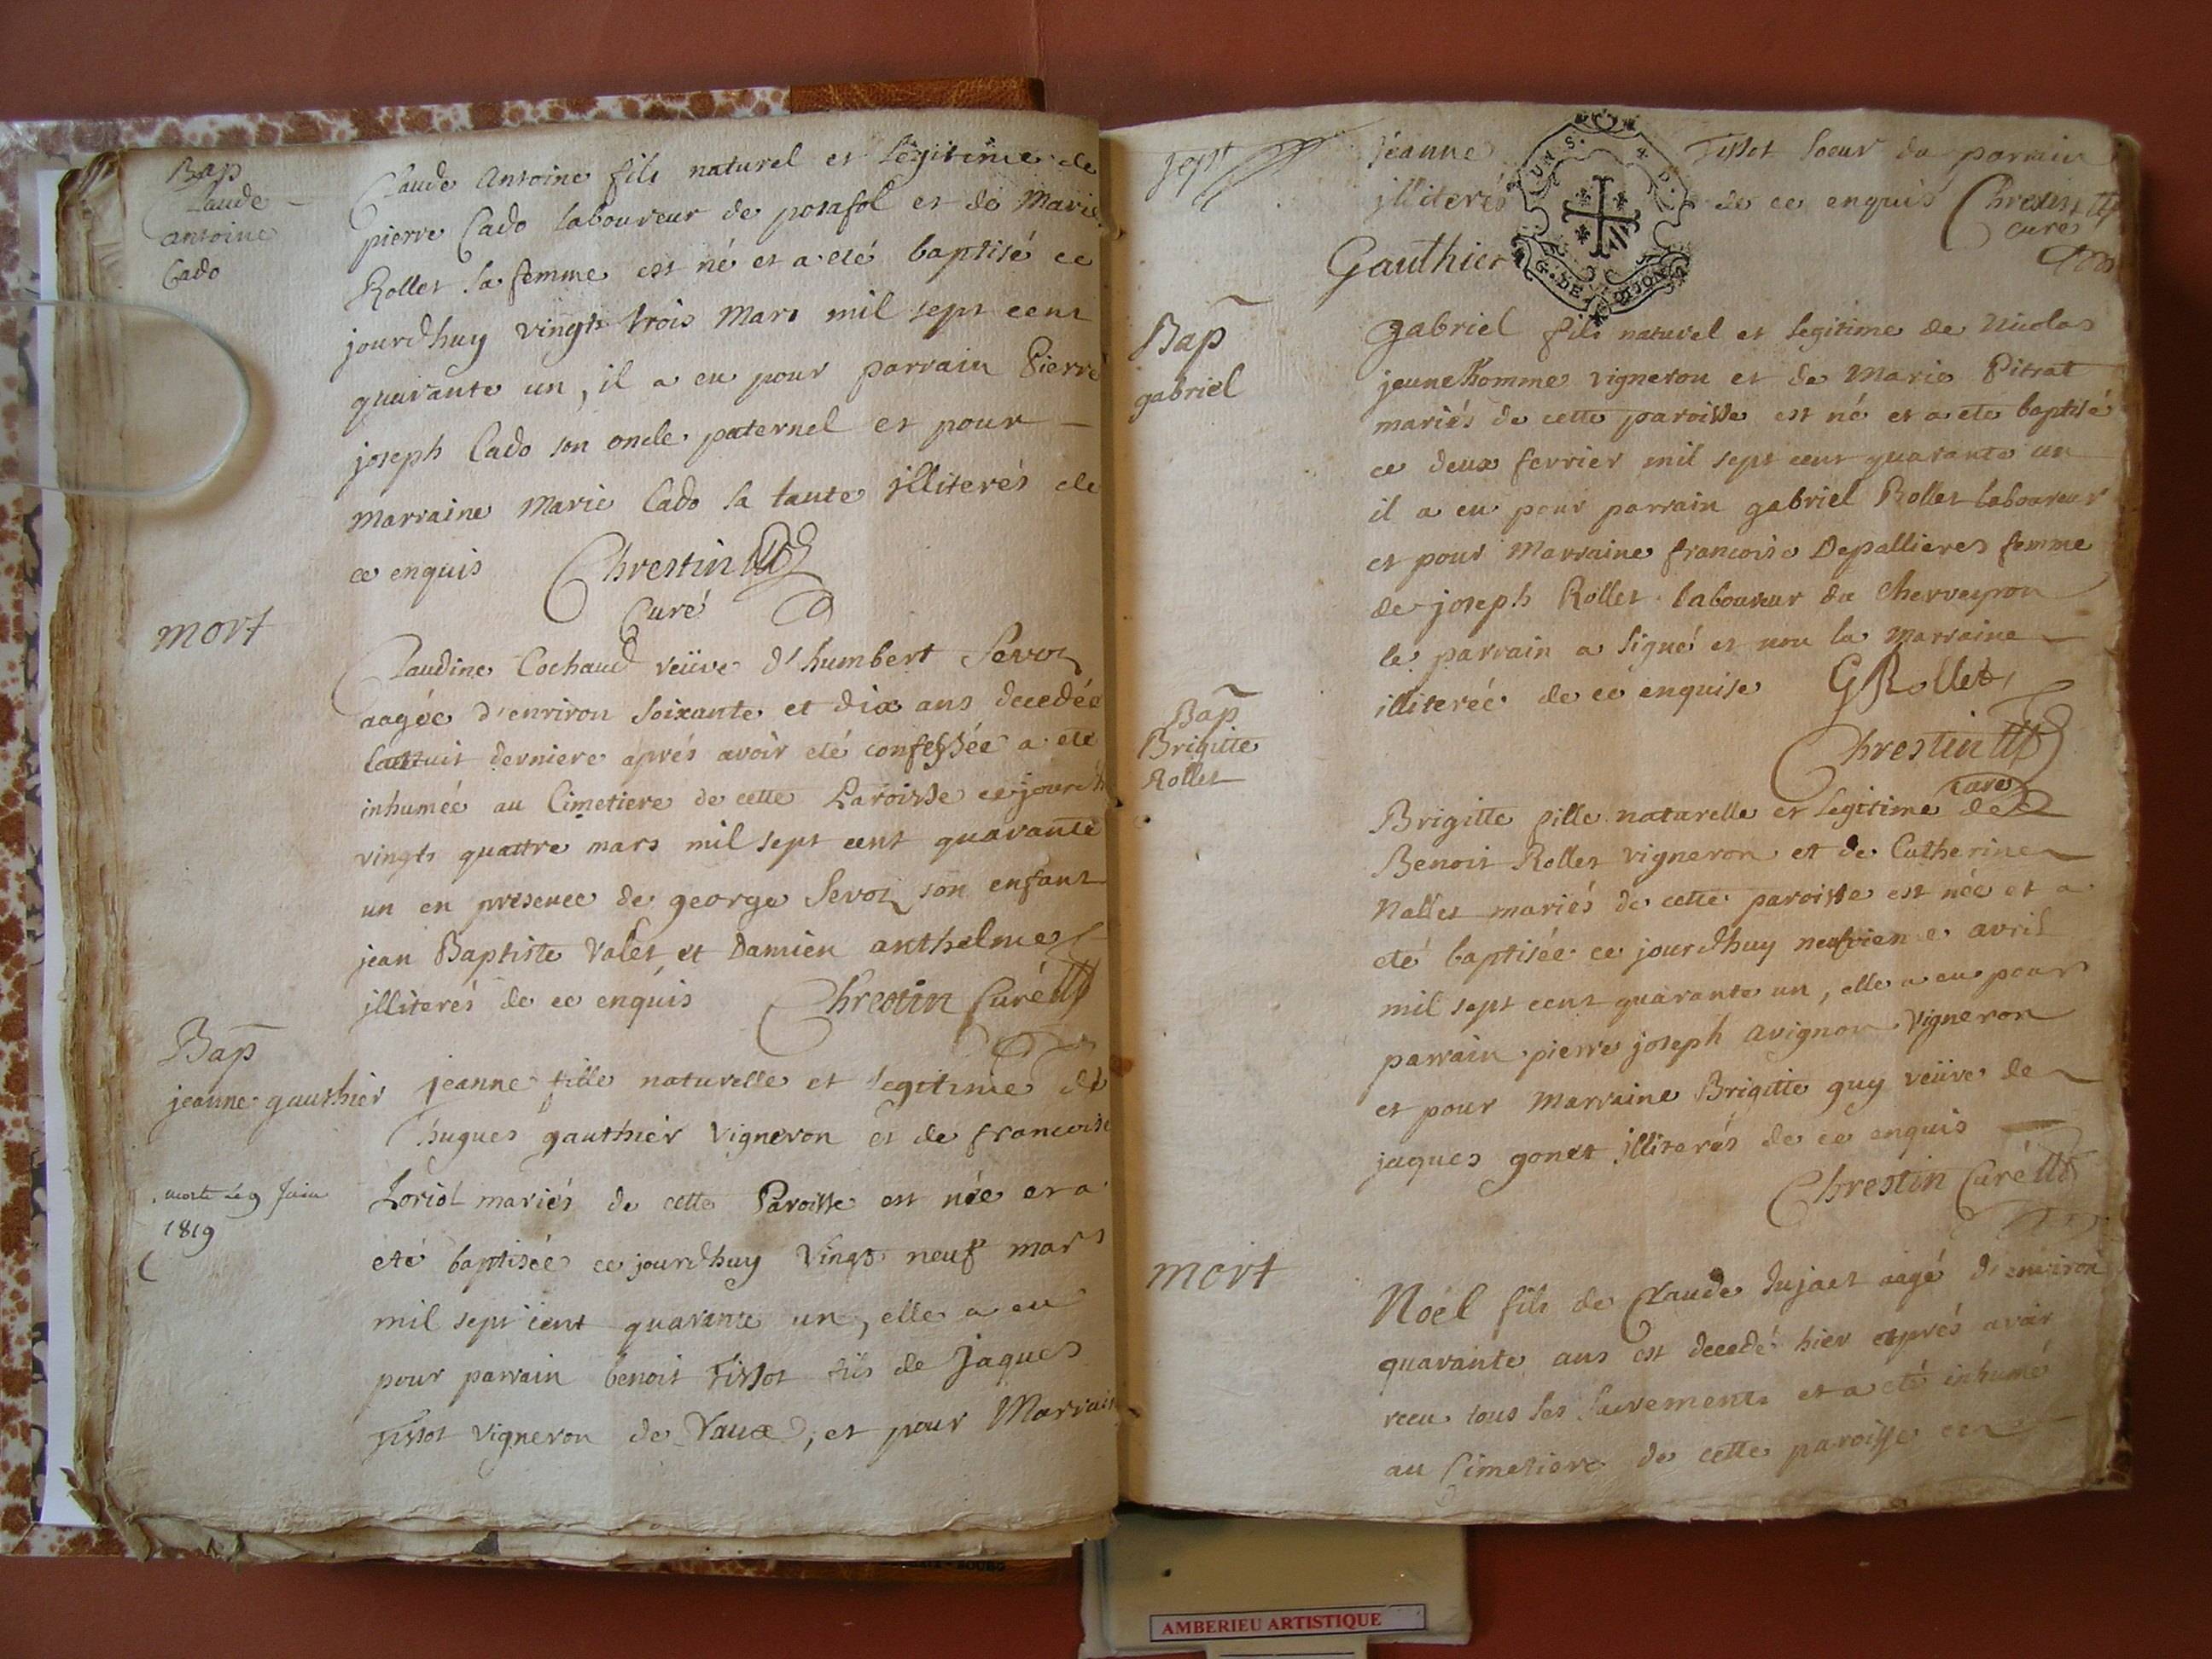 Bap
Claude
antoine
Cado
Claude Antoine fils naturel et legitime de
pierre Cado laboureur de posafol et de Marie
Rollet sa femme est né et a eté baptisé ce
jourdhuy vingts trois Mars mil sept cent
quarante un, il a eu pour parrain Pierre
joseph Cado son oncle paternel et pour
marraine Marie Cado sa tante jlliterés de
ce enquis Chrestin
Curé
mort
Claudine Cochaud veüve d'humbert Sevoz
aagée d'environ soixante et dix ans decedée
lanuit derniere aprés avoir eté confessée a eté
inhumée au Cimetiere de cette Paroisse ce jourdh
vingts quattre mars mil sept cent quarante
un en presence de george Sevoz son enfant
jean Baptiste Valet et Damien anthelme
jlliterés de ce enquis Chrestin Curé
Bap
jeanne gauthier
jeanne fille naturelle et legitime de
hugues gauthier Vigneron et de francoise
Loriol mariés de cette Paroisse est née et a
eté baptisée ce jourdhuy Vingts neuf mars
mil sept cent quarante un, elle a eu
pour parrain benoit Tissot fils de Jaques
Tissot vigneron de Vaux, et pour Marraine
morte le 9 Juin
1819
sept
jeanne Tissot soeur du parrain
jlliterés de ce enquis Chrestin
curé
Gauthier
G. DE DIJON
Bap
gabriel
gabriel fils naturel et legitime de Nicolas
jeunehomme vigneron et de Marie Pitrat
mariés de cette paroisse est né et a eté baptisé
ce deux fevrier mil sept cent quarante un
il a eu pour parrain gabriel Rollet laboureur
et pour Marraine francoise Depallieres femme
de joseph Rollet laboureur du Cherveyron
le parrain a signé et non la marraine
illiterée de ce enquise GRollet
Chrestin
curé
Bap
Brigitte
Rollet
Brigitte fille naturelle et legitime de
Benoit Rollet vigneron et de Catherine
Nallet mariés de cette paroisse est née et a
eté baptisée ce jourdhuy neufvieme avril
mil sept cent quarante un, elle a eu pour
parrain pierre joseph avignon vigneron
et pour Marraine Brigitte guy veüve de
jaques gonet jlliterés de ce enquis
Chrestin Curé
mort
Noël fils de Claude Dujaet aagé d'environ
quarante ans est decedé hier aprés avoir
receu tous les sacrements et a eté inhumé
au Cimetiere de cette paroisse ce
AMBERIEU ARTISTIQUE